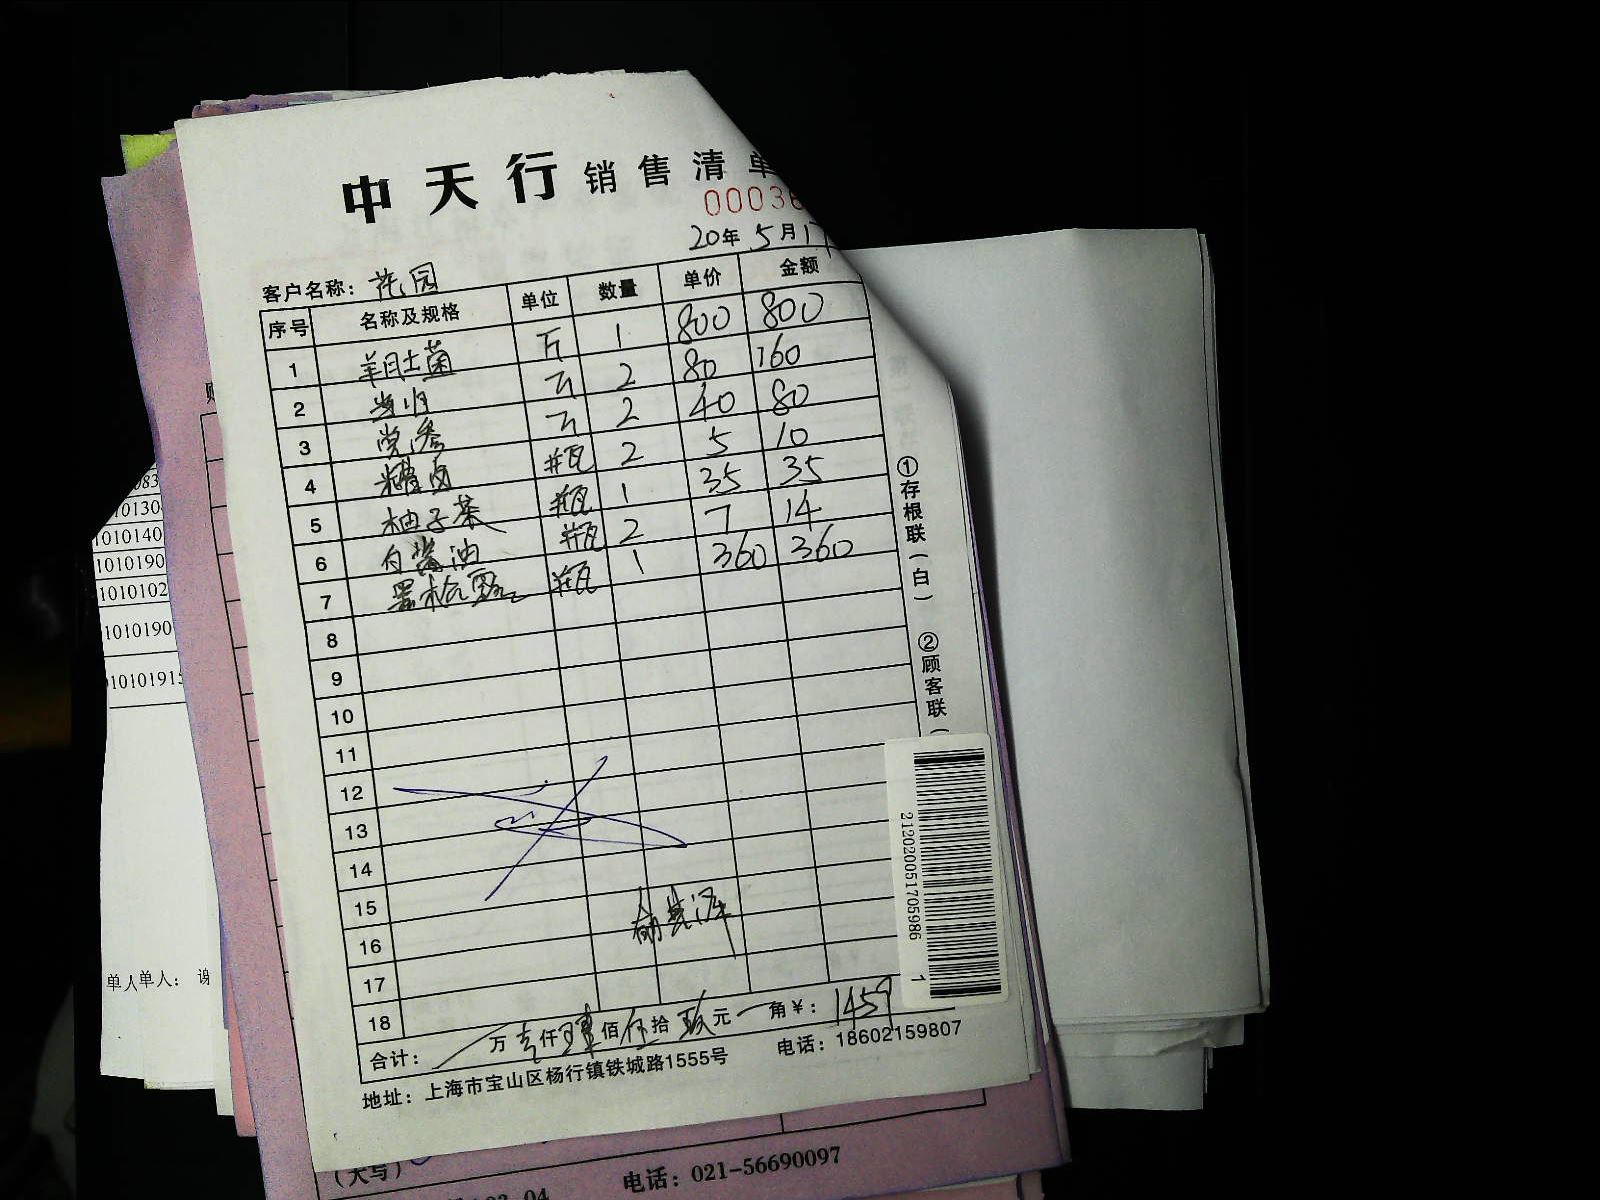 中天行 销售清单
00036
20年 5月17
客户名称：花园
序号 名称及规格 单位 数量 单价 金额
1 羊肚菌 斤 1 800 800
2 当归 斤 2 80 160
3 党参 斤 2 40 80
4 糟卤 瓶 2 5 10
5 柚子茶 瓶 1 35 35
6 白酱油 瓶 2 7 14
7 瓶 1 360 360
8
9
10
11
12
13
14
15
16
17
18
合计： 万壹仟肆佰伍拾玖元 角￥：1459
地址：上海市宝山区杨行镇铁城路1555号 电话：18602159807
①存根联（白） ②顾客联（
2120200517059861
083
10130
1010140
1010190
1010102
1010190
10101915
单人单人： 谢
（大写）
电话：021-56690097
04